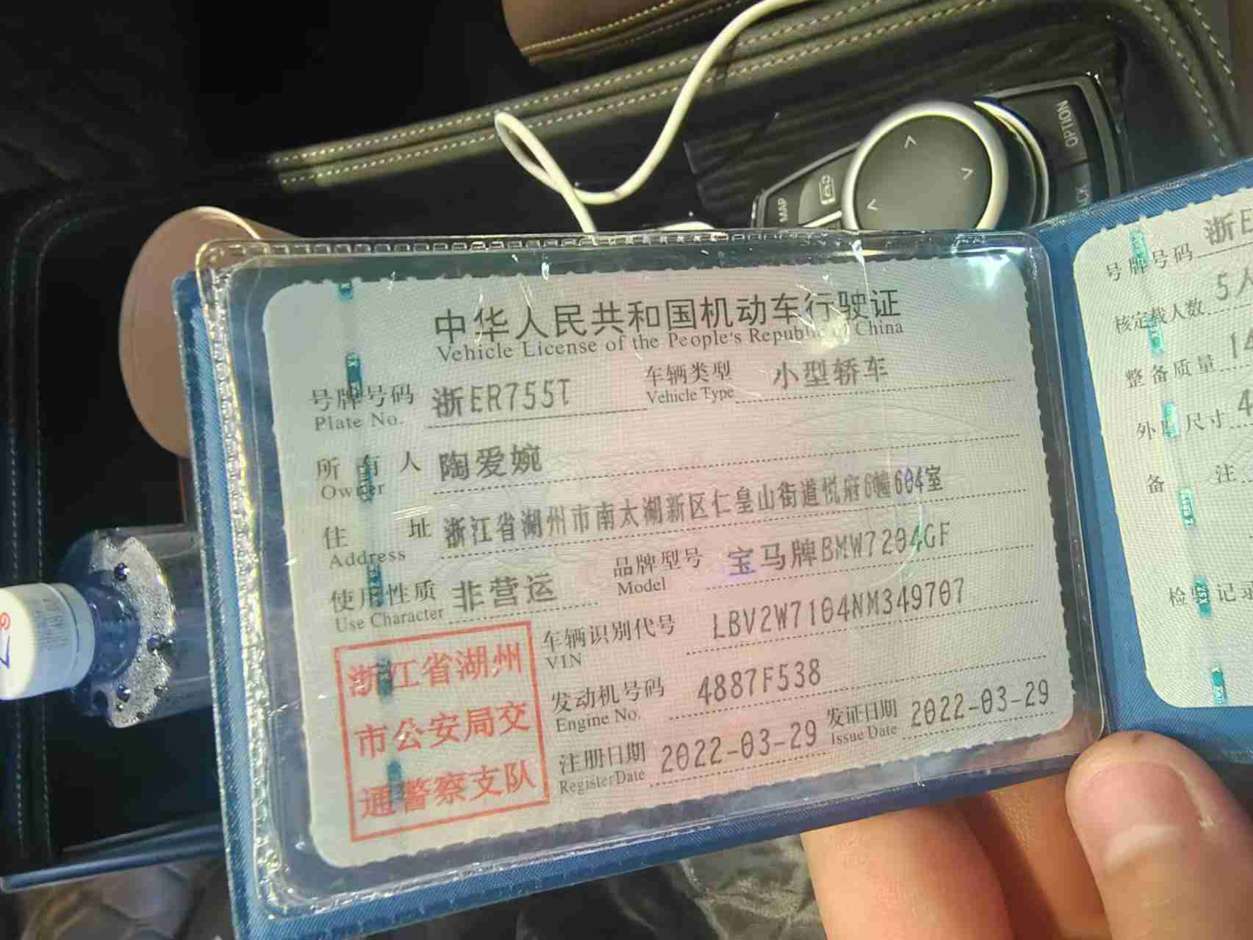 中华人民共和国机动车行驶证
Vehicle License of the People's Republic of China
号牌号码 浙ER755T 车辆类型 小型轿车
Plate No. Vehicle Type
所有人 陶爱婉
Owner
住址 浙江省湖州市南太湖新区仁皇山街道悦府6幢604室
Address
使用性质 非营运 品牌型号 宝马牌BMW7204GF
Use Character Model
浙江省湖州
市公安局交
通警察支队
车辆识别代号 LBV2W7104NM349707
VIN
发动机号码 4887F538
Engine No.
注册日期 2022-03-29 发证日期 2022-03-29
Register Date Issue Date
号牌号码 浙E
核定载人数 5人
整备质量 14
外廓尺寸 4
备注
检验记录
MAP
OPTION